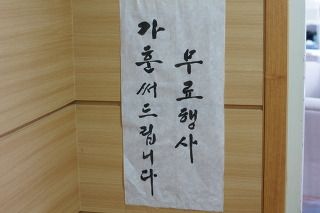 가훈써드립니다
무료행사